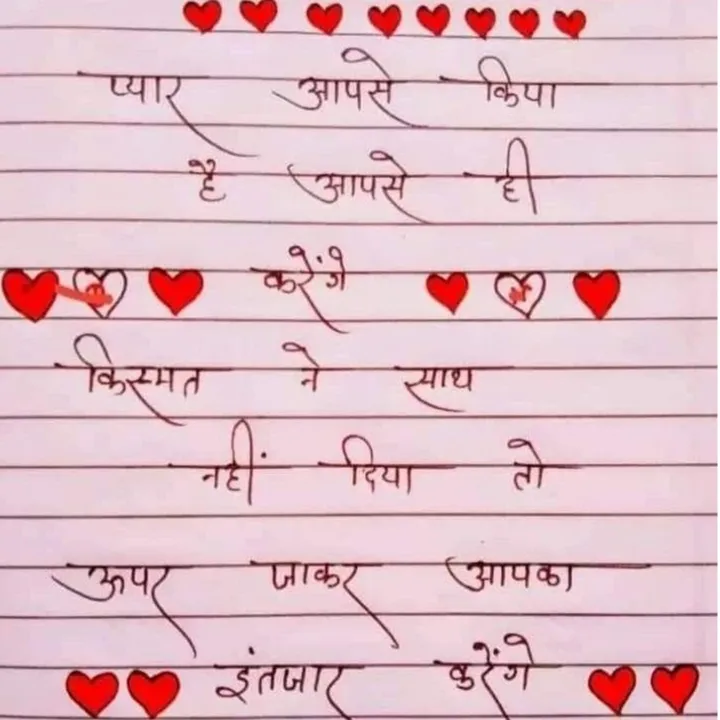 प्यार आपसे किया
है आपसे ही
करेंगे
किस्मत ने साथ
नहीं दिया तो
ऊपर जाकर आपका
इंतजार करेंगे